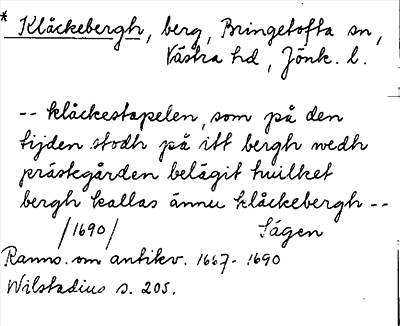 * Klåckebergh, berg, Bringetofta sn,
Västra hd, Jönk. l.
-- klåckestapelen, som på den
tijden stodh på itt bergh wedh
prästgården belägit huilket
bergh kallas ännu klåckebergh --
/1690/ Sägen
Ranns. om antikv. 1667-1690
Wilstadius s. 205.